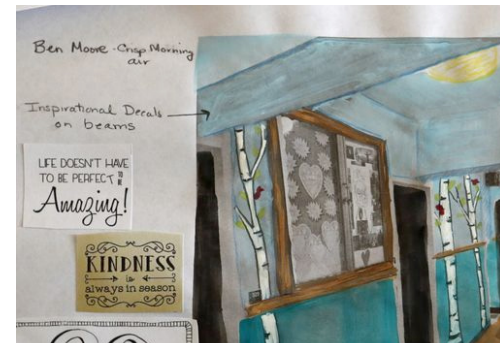 Ben Moore - Crisp Morning
air
Inspirational Decals
on beams
LIFE DOESN'T HAVE
TO BE PERFECT TO BE
Amazing!
KINDNESS
is
always in season